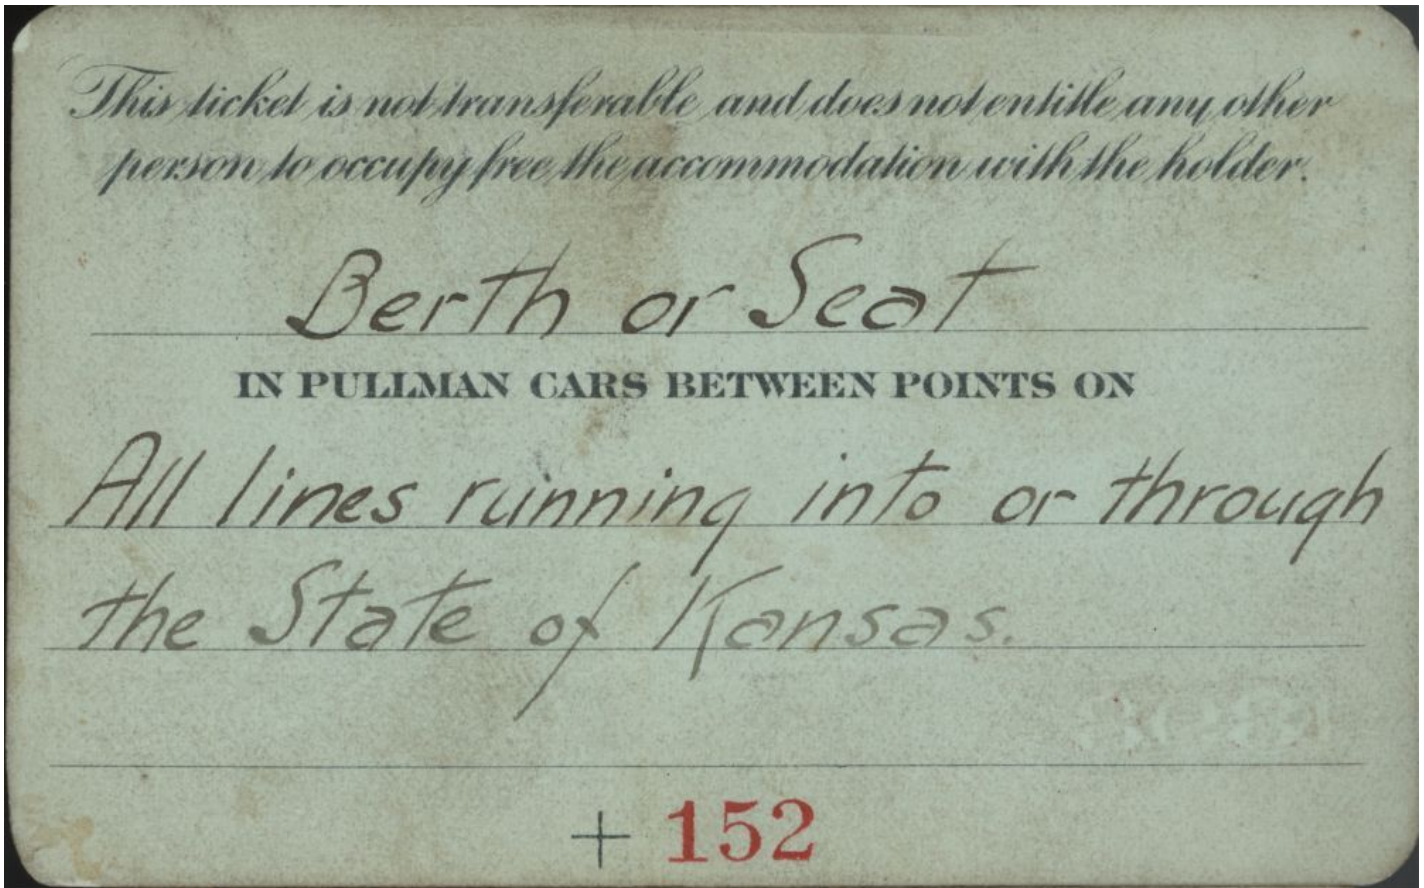 This ticket is not transferable and does not entitle any other
person to occupy free the accommodation with the holder.
Berth or Seat
IN PULLMAN CARS BETWEEN POINTS ON
All lines running into or through
the State of Kansas.
+ 152